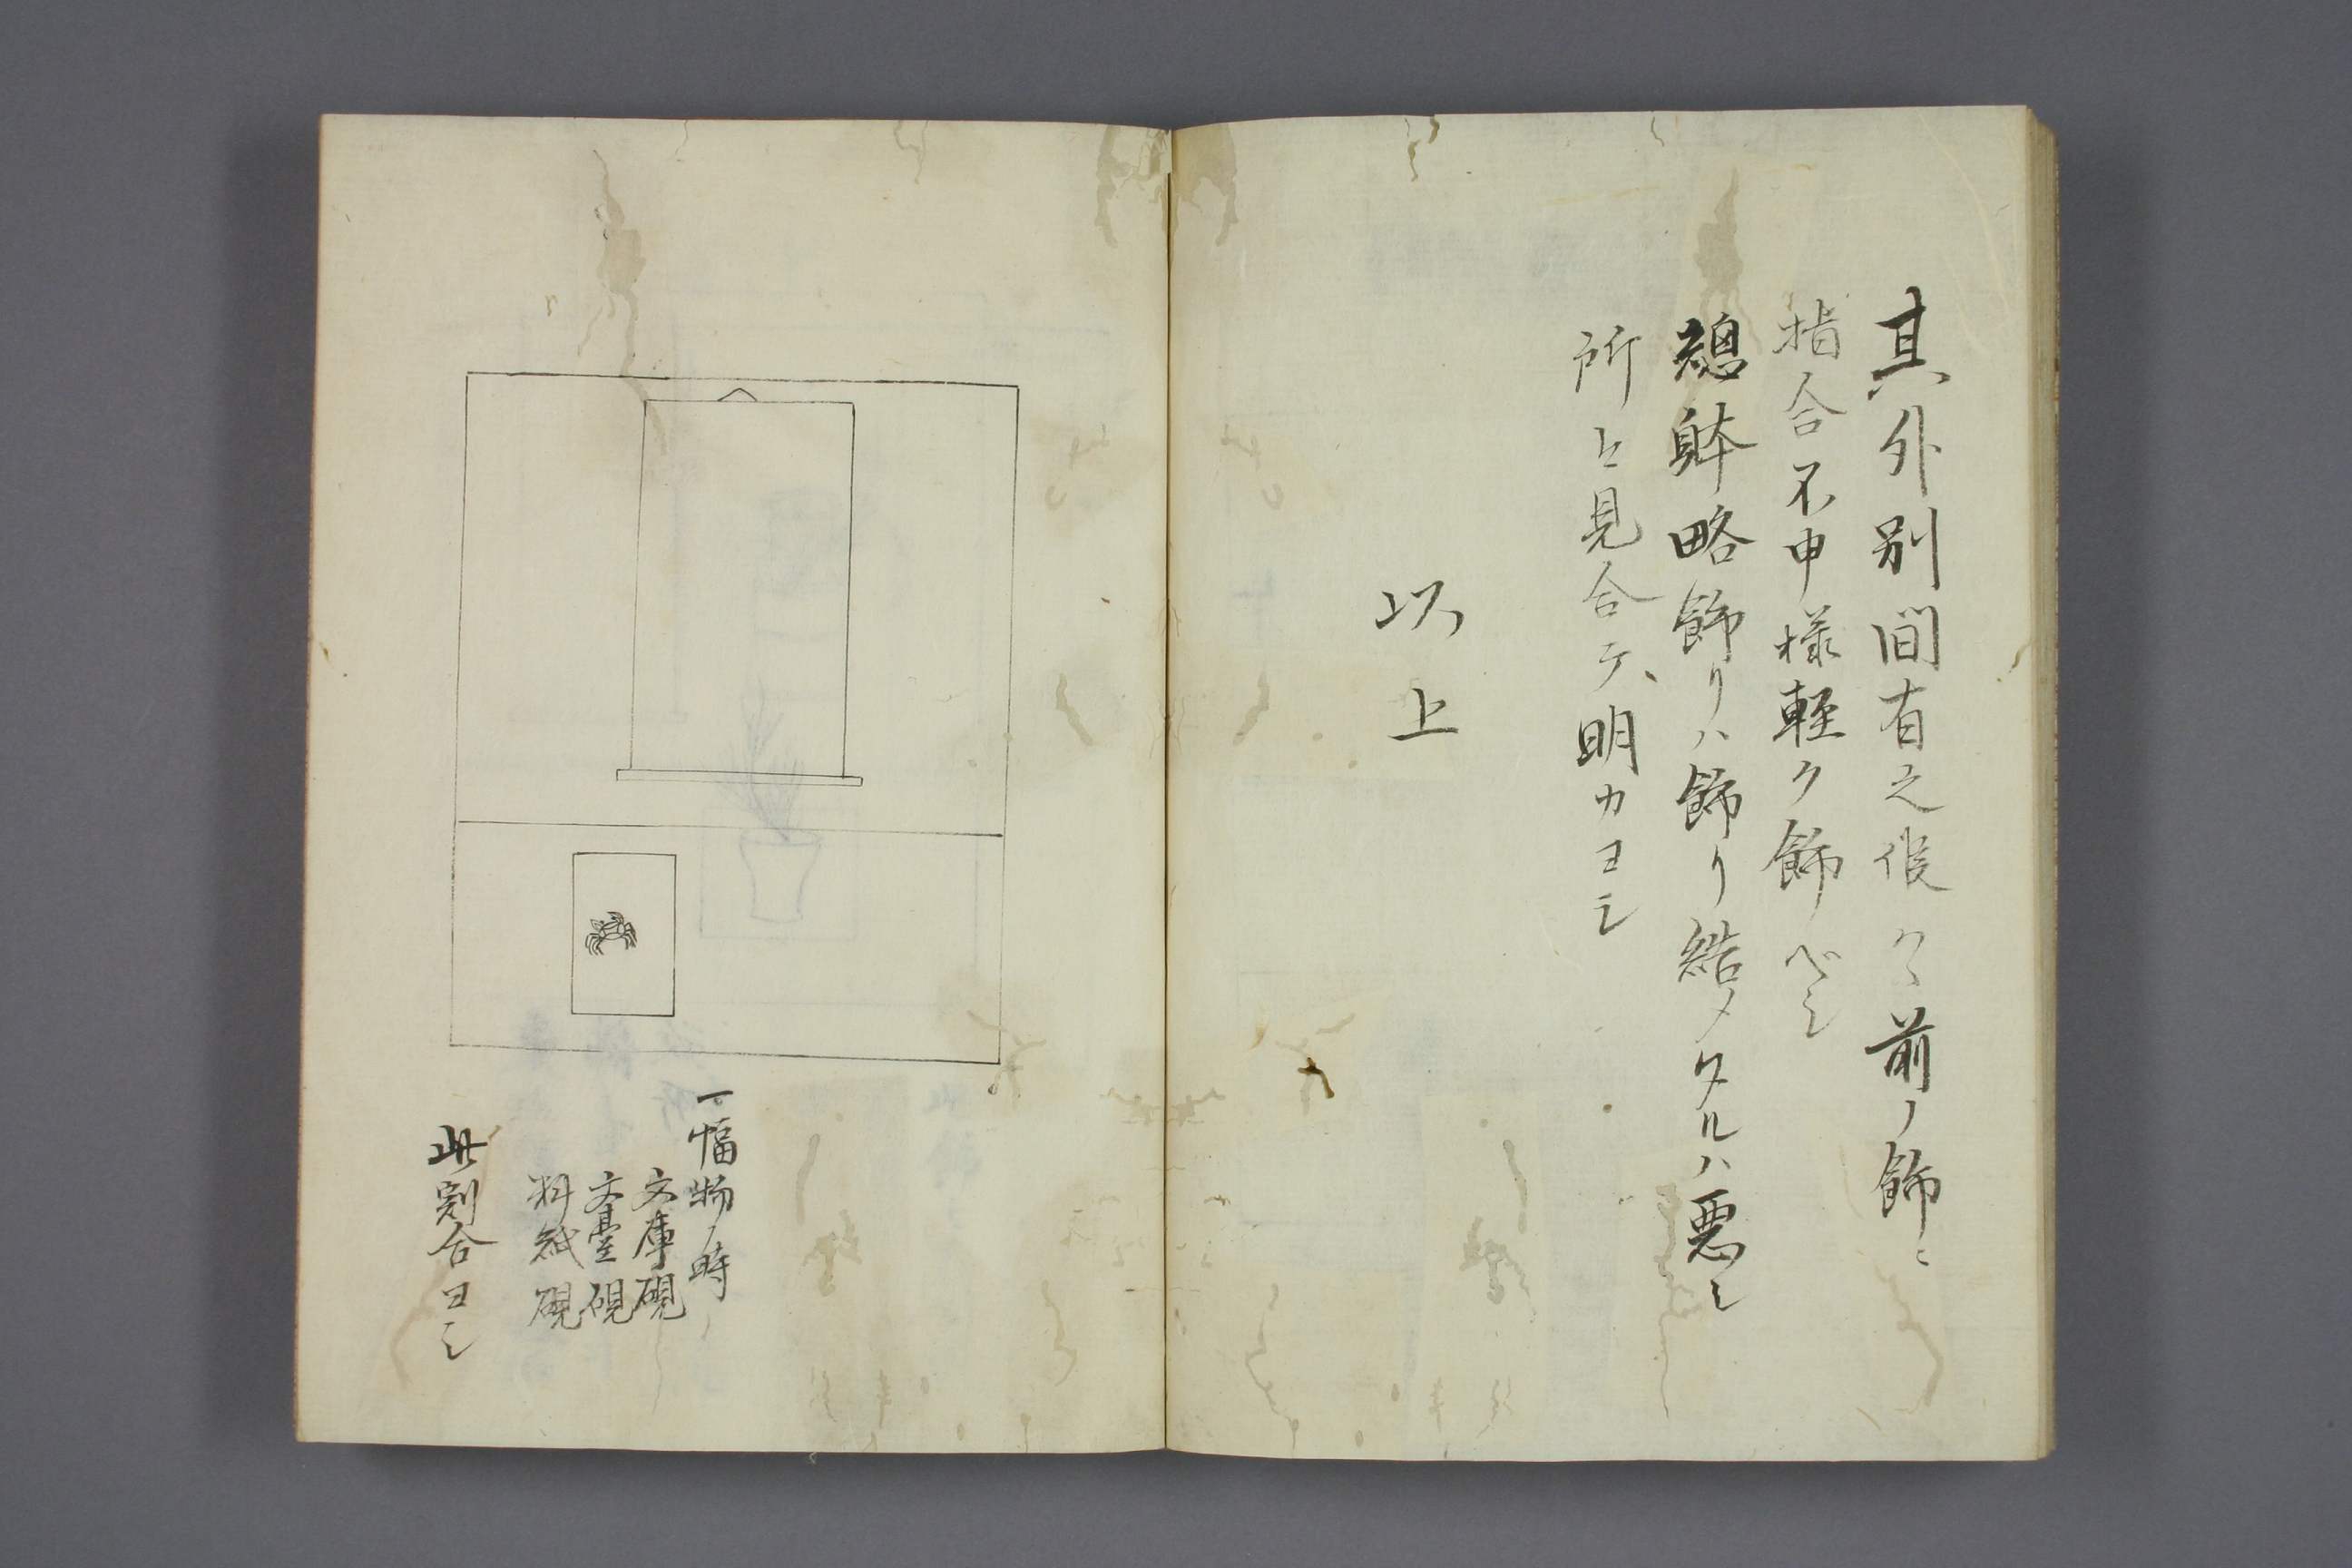 其外別間有之候ハヽ前ノ飾ニ
指合不申様軽ク飾ベシ
総躰略飾リハ飾リ結メタルハ悪シ
所々見合テ明カヨシ
以上
一幅物ノ時
文庫硯
文臺硯
料紙硯
此割合ヨシ